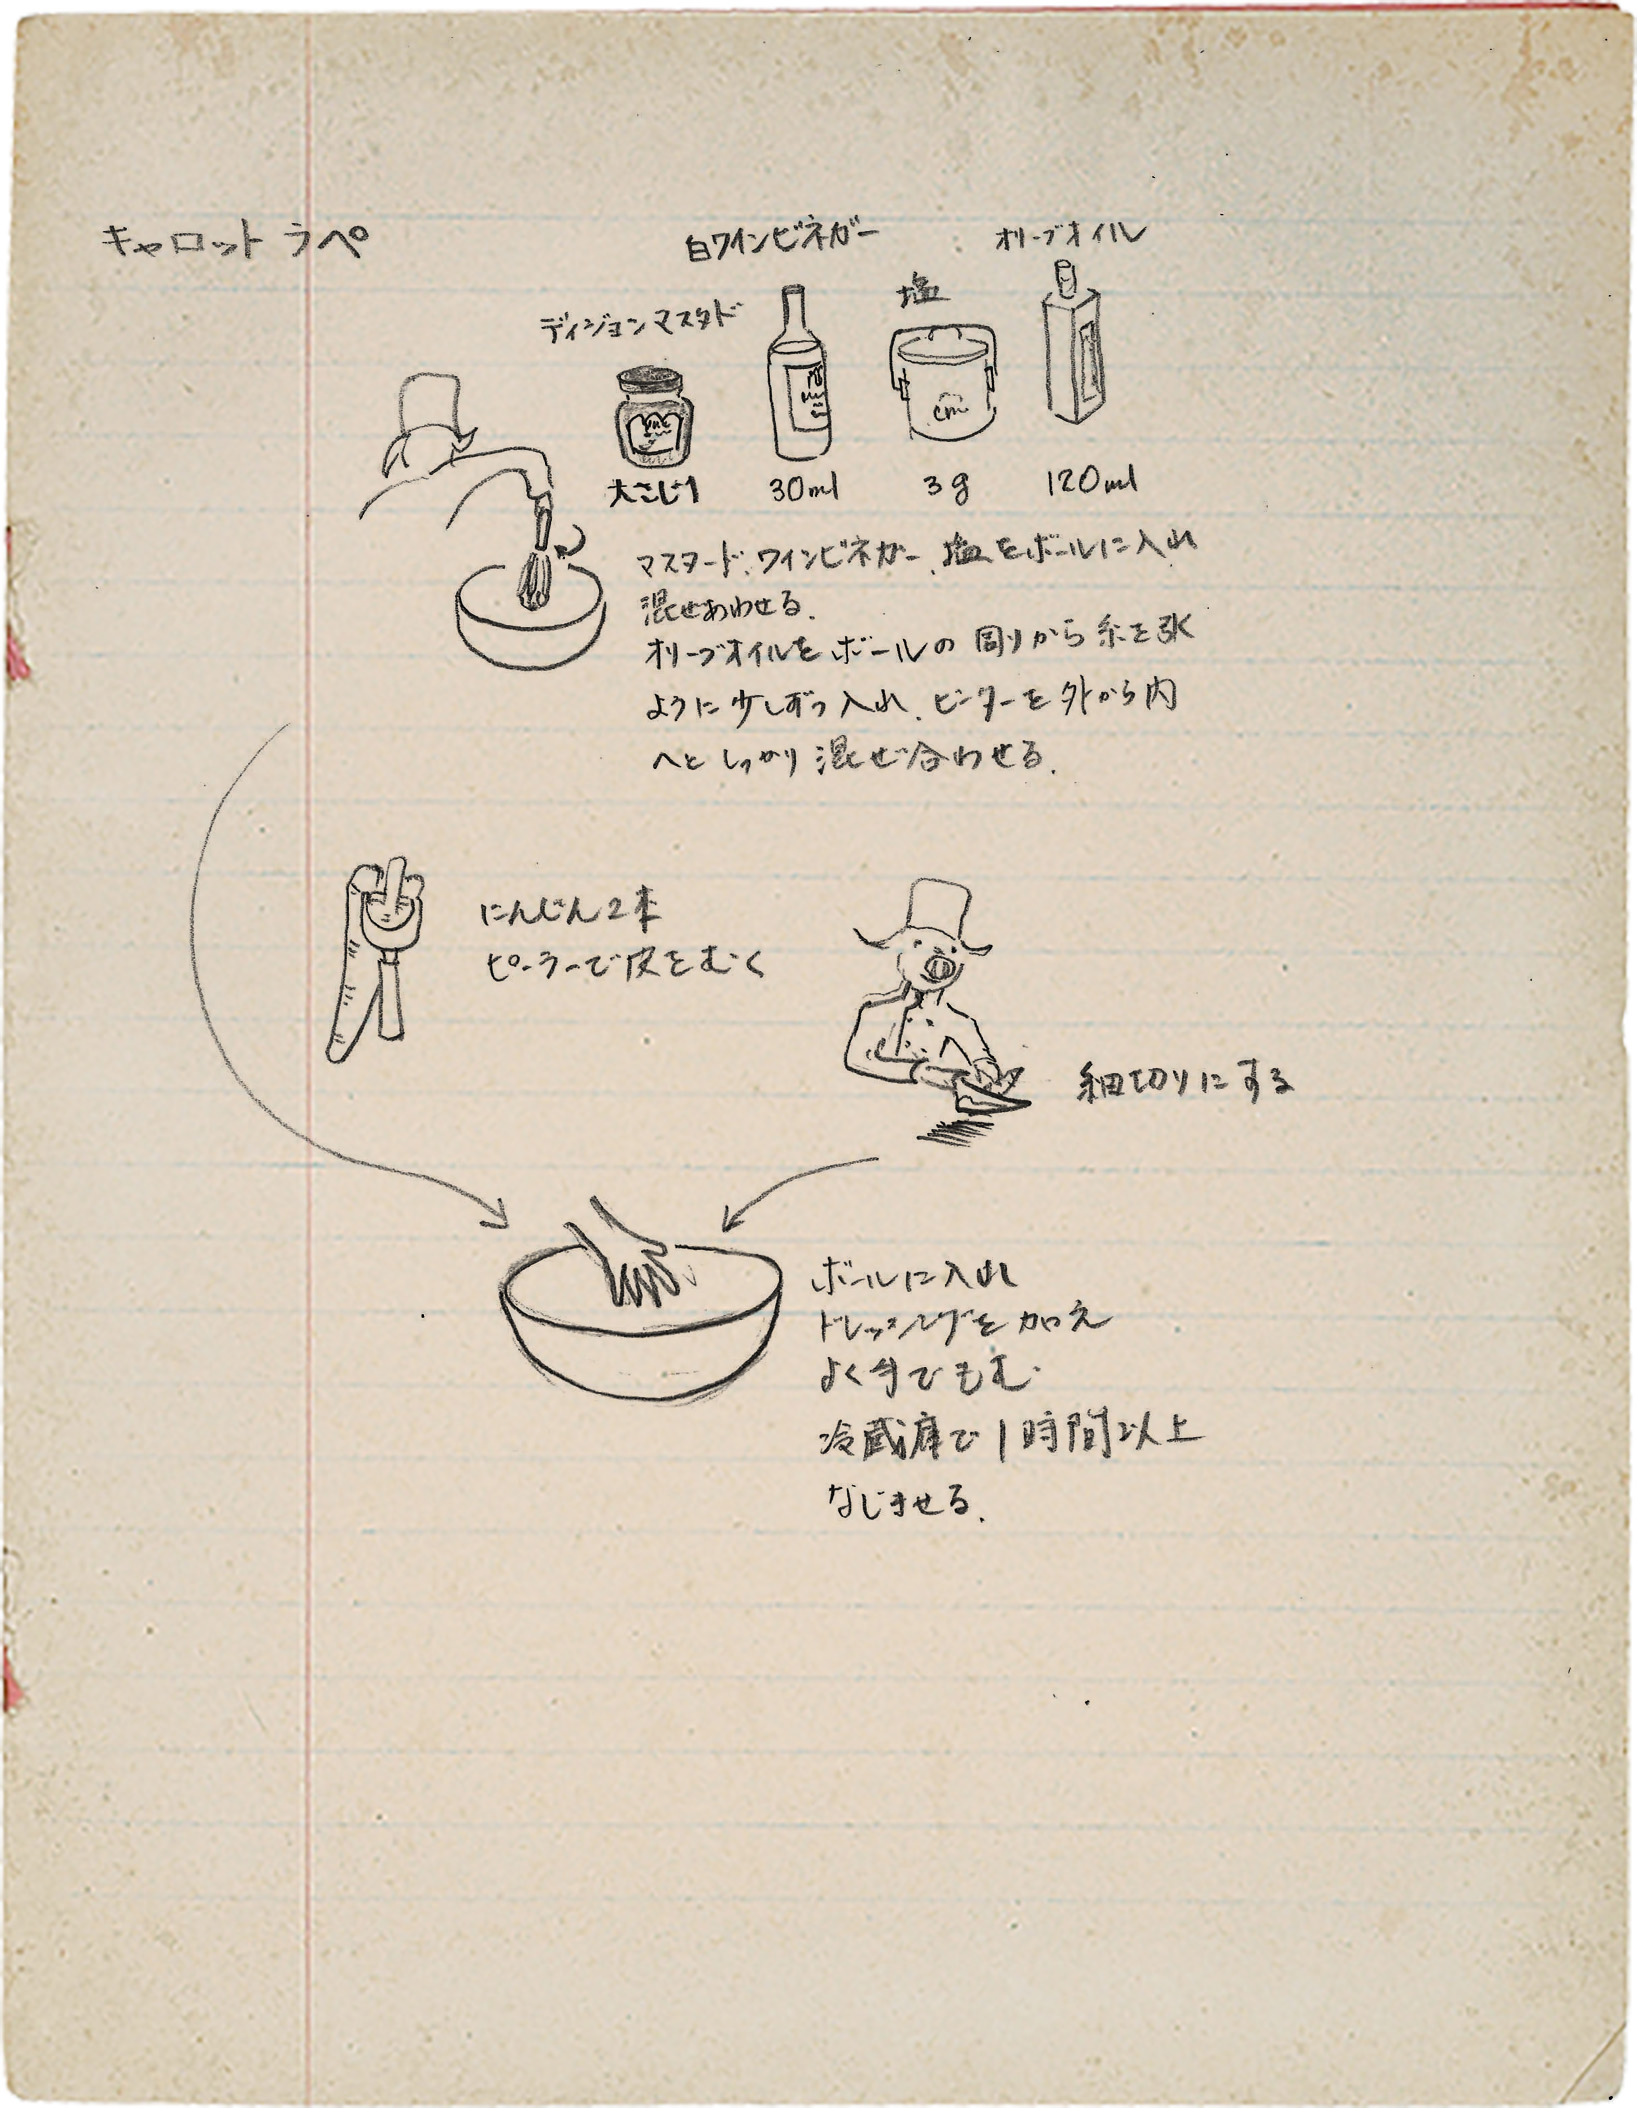 キャロットラペ
白ワインビネガー
オリーブオイル
塩
ディジョンマスタド
大さじ1
30ml
3g
120ml
マスタード、ワインビネガー、塩をボールに入れ
混せあわせる.
オリーブオイルをボールの周りから糸を引く
ように少しずつ入れ、ビーターを外から内
へとしっかり混ぜ合わせる.
にんじん2本
ピーラーで皮をむく
細切りにする
ボールに入れ
ドレッシングを加え
よく手でもむ.
冷蔵庫で1時間以上
なじませる.